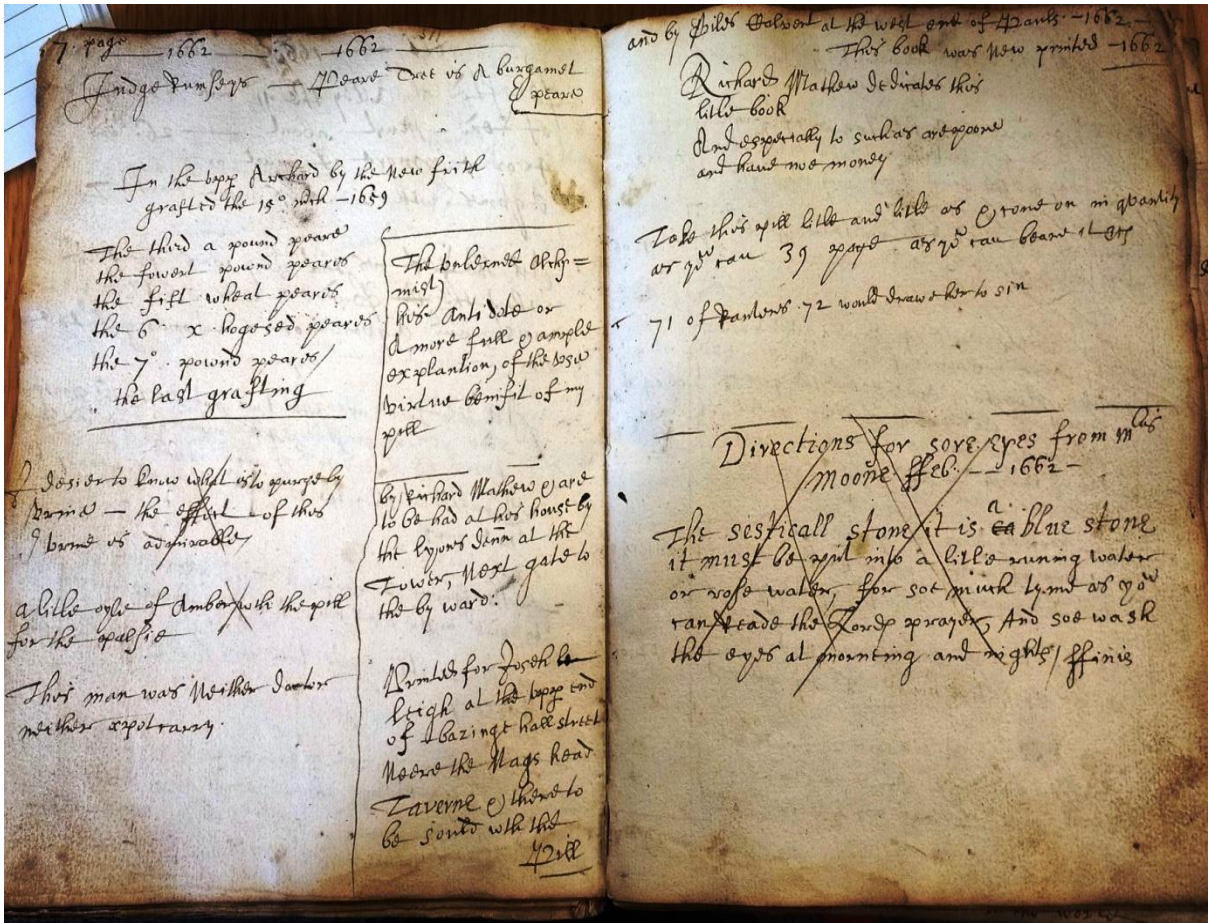 7 page 1662 1662
Judge Rumseys Peare Tree is A burgamet
peare
In the upp Archard by the New frith
grafted the 15° — 1659
The third a pound peare
the fowert pownd peares
the fift wheat peares
the 6 x hogesed peares
the 7° pownd peares /
the last grafting
I desier to know what is to purge by
vrine — the effect of this
vrine is admirable /
A litle oyle of Amber wth the pill
for the palsie
This man was Neither doctor
neither apotcarry.
The Unlerned Alchy=
mist
his Antidote or
A more full & ample
explantion, of the vse
virtue benifit of my
pill
by Richard Mathew & are
to be had at his house by
the lyons denn at the
Tower, Next gate to
the by ward.
Printed for Joseph
leigh at the upp end
of bazinge hall street
Neere the Nags head
Taverne & there to
be sould wth the
Pill
and by Giles Calvert at the west end of Pauls — 1662 —
This book was New printed — 1662
Richard Mathew Dedicates this
litle book
And especially to such as are poore
and have noe money
Take this pill litle and litle as & come on in quantity
as yow can 39 page as yow can beare it
71 of Ranters 72 would draw her to sin
Directions for sore eyes from mris
Moone ffeb — 1662 —
The sesticall stone it is a blue stone
it must be put into a litle running water
or rose water, for soe much tyme as yow
can reade the Lords prayer, And soe wash
the eyes at morneing and nights / ffinis